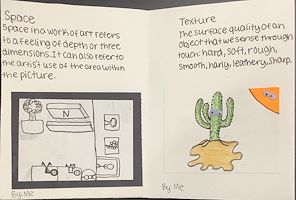 Space
Space in a work of art refers
to a feeling of depth or three
dimensions. It can also refer to
the artist use of the area within
the picture.
N
By: Me
Texture
The surface quality of an
object that we sense through
touch: hard, soft, rough,
smooth, hairy, leathery, sharp.
By: Me